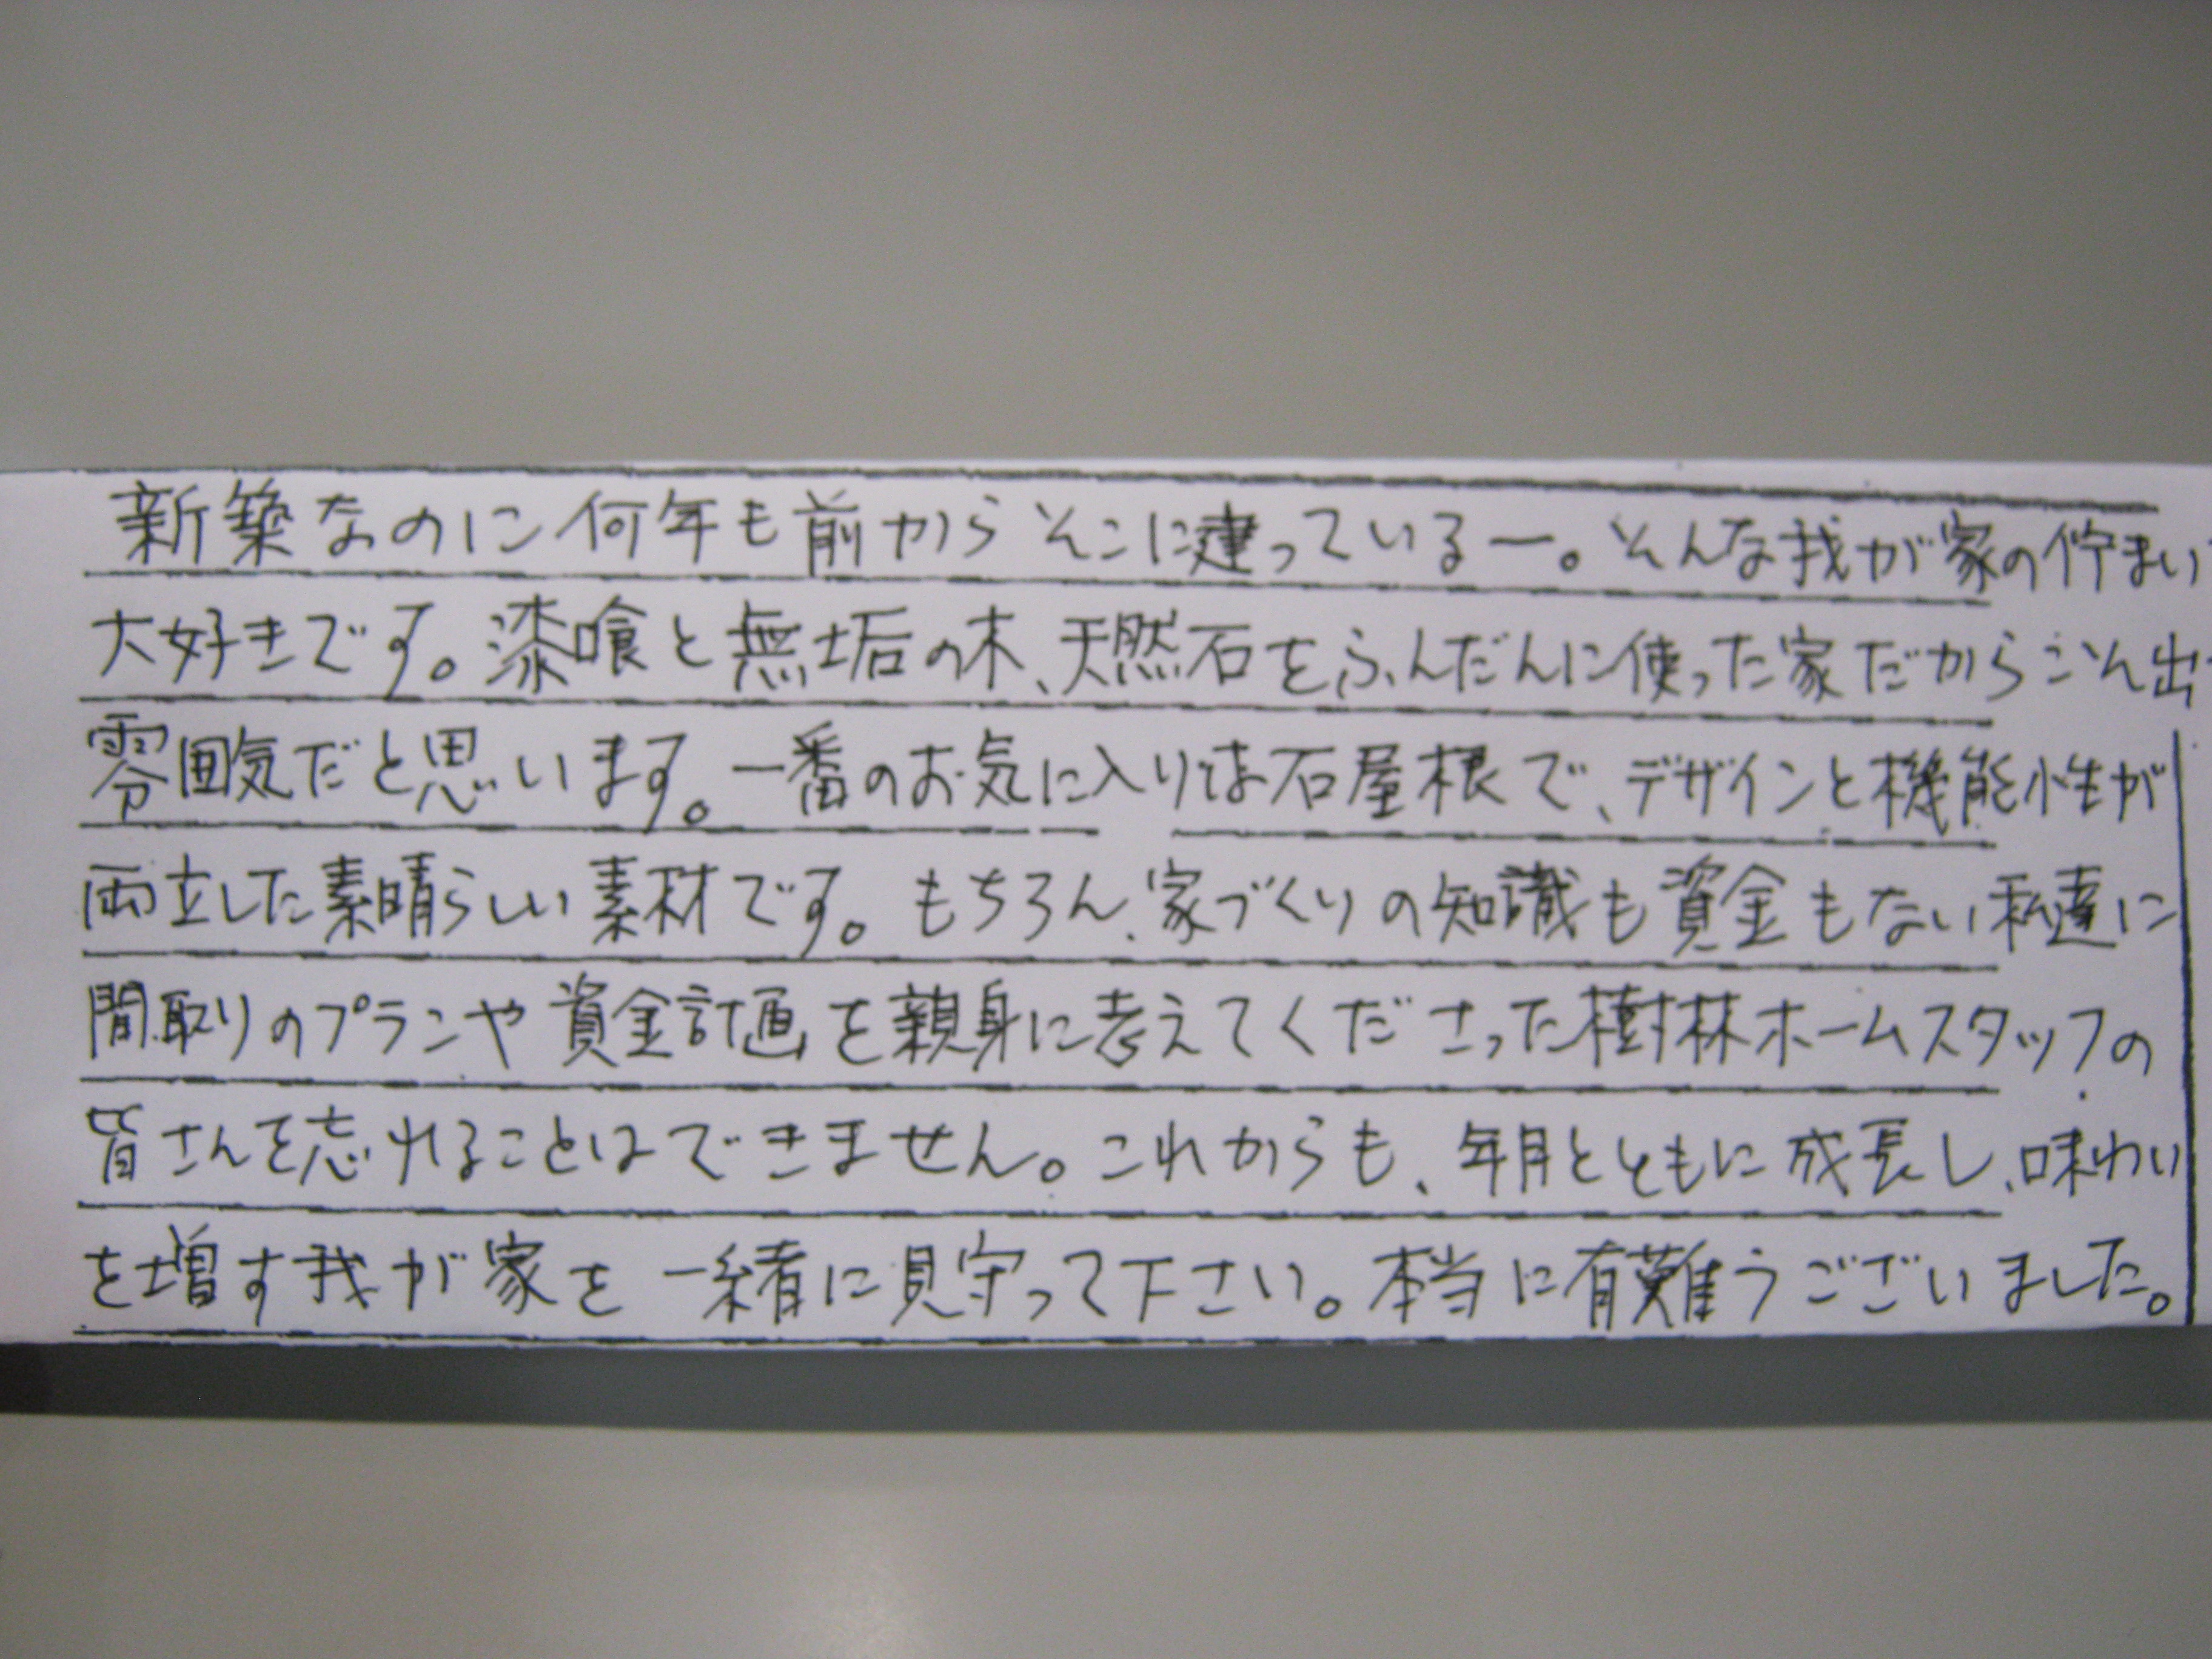 新築なのに何年も前からそこに建っているー。そんな我が家の佇まい
大好きです。漆喰と無垢の木、天然石をふんだんに使った家だからこそん出
雰囲気だと思います。一番のお気に入りは石屋根で、デザインと機能性が
両立した素晴らしい素材です。もちろん、家づくりの知識も資金もない私達に
間取りのプランや資金計画を親身に考えてくださった樹林ホームスタッフの
皆さんを忘れることはできません。これからも、年月とともに成長し、味わい
を増す我が家を一緒に見守って下さい。本当に有難うございました。